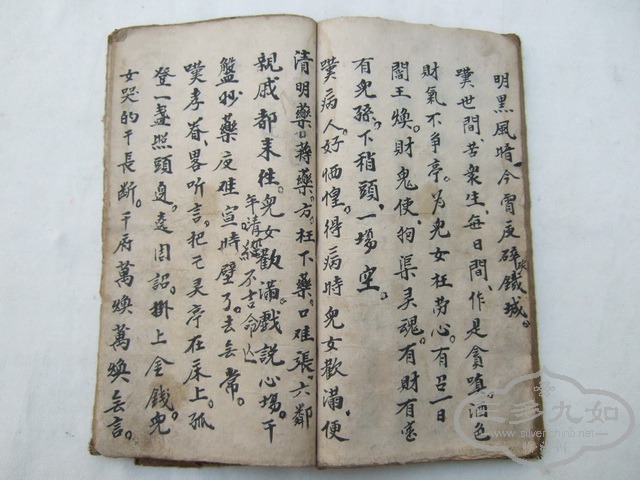 明黑風暗今宵度碎鐵城。
嘆世間、苦衆生、每日間、作是貪嗔。酒色
財氣不爭亭。为兒女枉劳心。有召一日
閻王煥。財鬼使拘渠灵魂。有財有
有兒孫。下稍頭、一場空。
嘆病人。好恓惶。得病時兒女歡滿、便
清明藥蔣藥。方。枉下藥。口难張。六鄰
親戚都来往。兒女歡滿。戲説心塲。千
年請經不古命
盤妙藥反难宣時壁了。去去常。
嘆孝眷、畧听言。把亡灵亭在床上。孤
登一盞照頭邊。遠週詔。掛上金錢兒
女哭的千長断。千府萬煥萬煥去言。
三多九如
www.silverchina.net